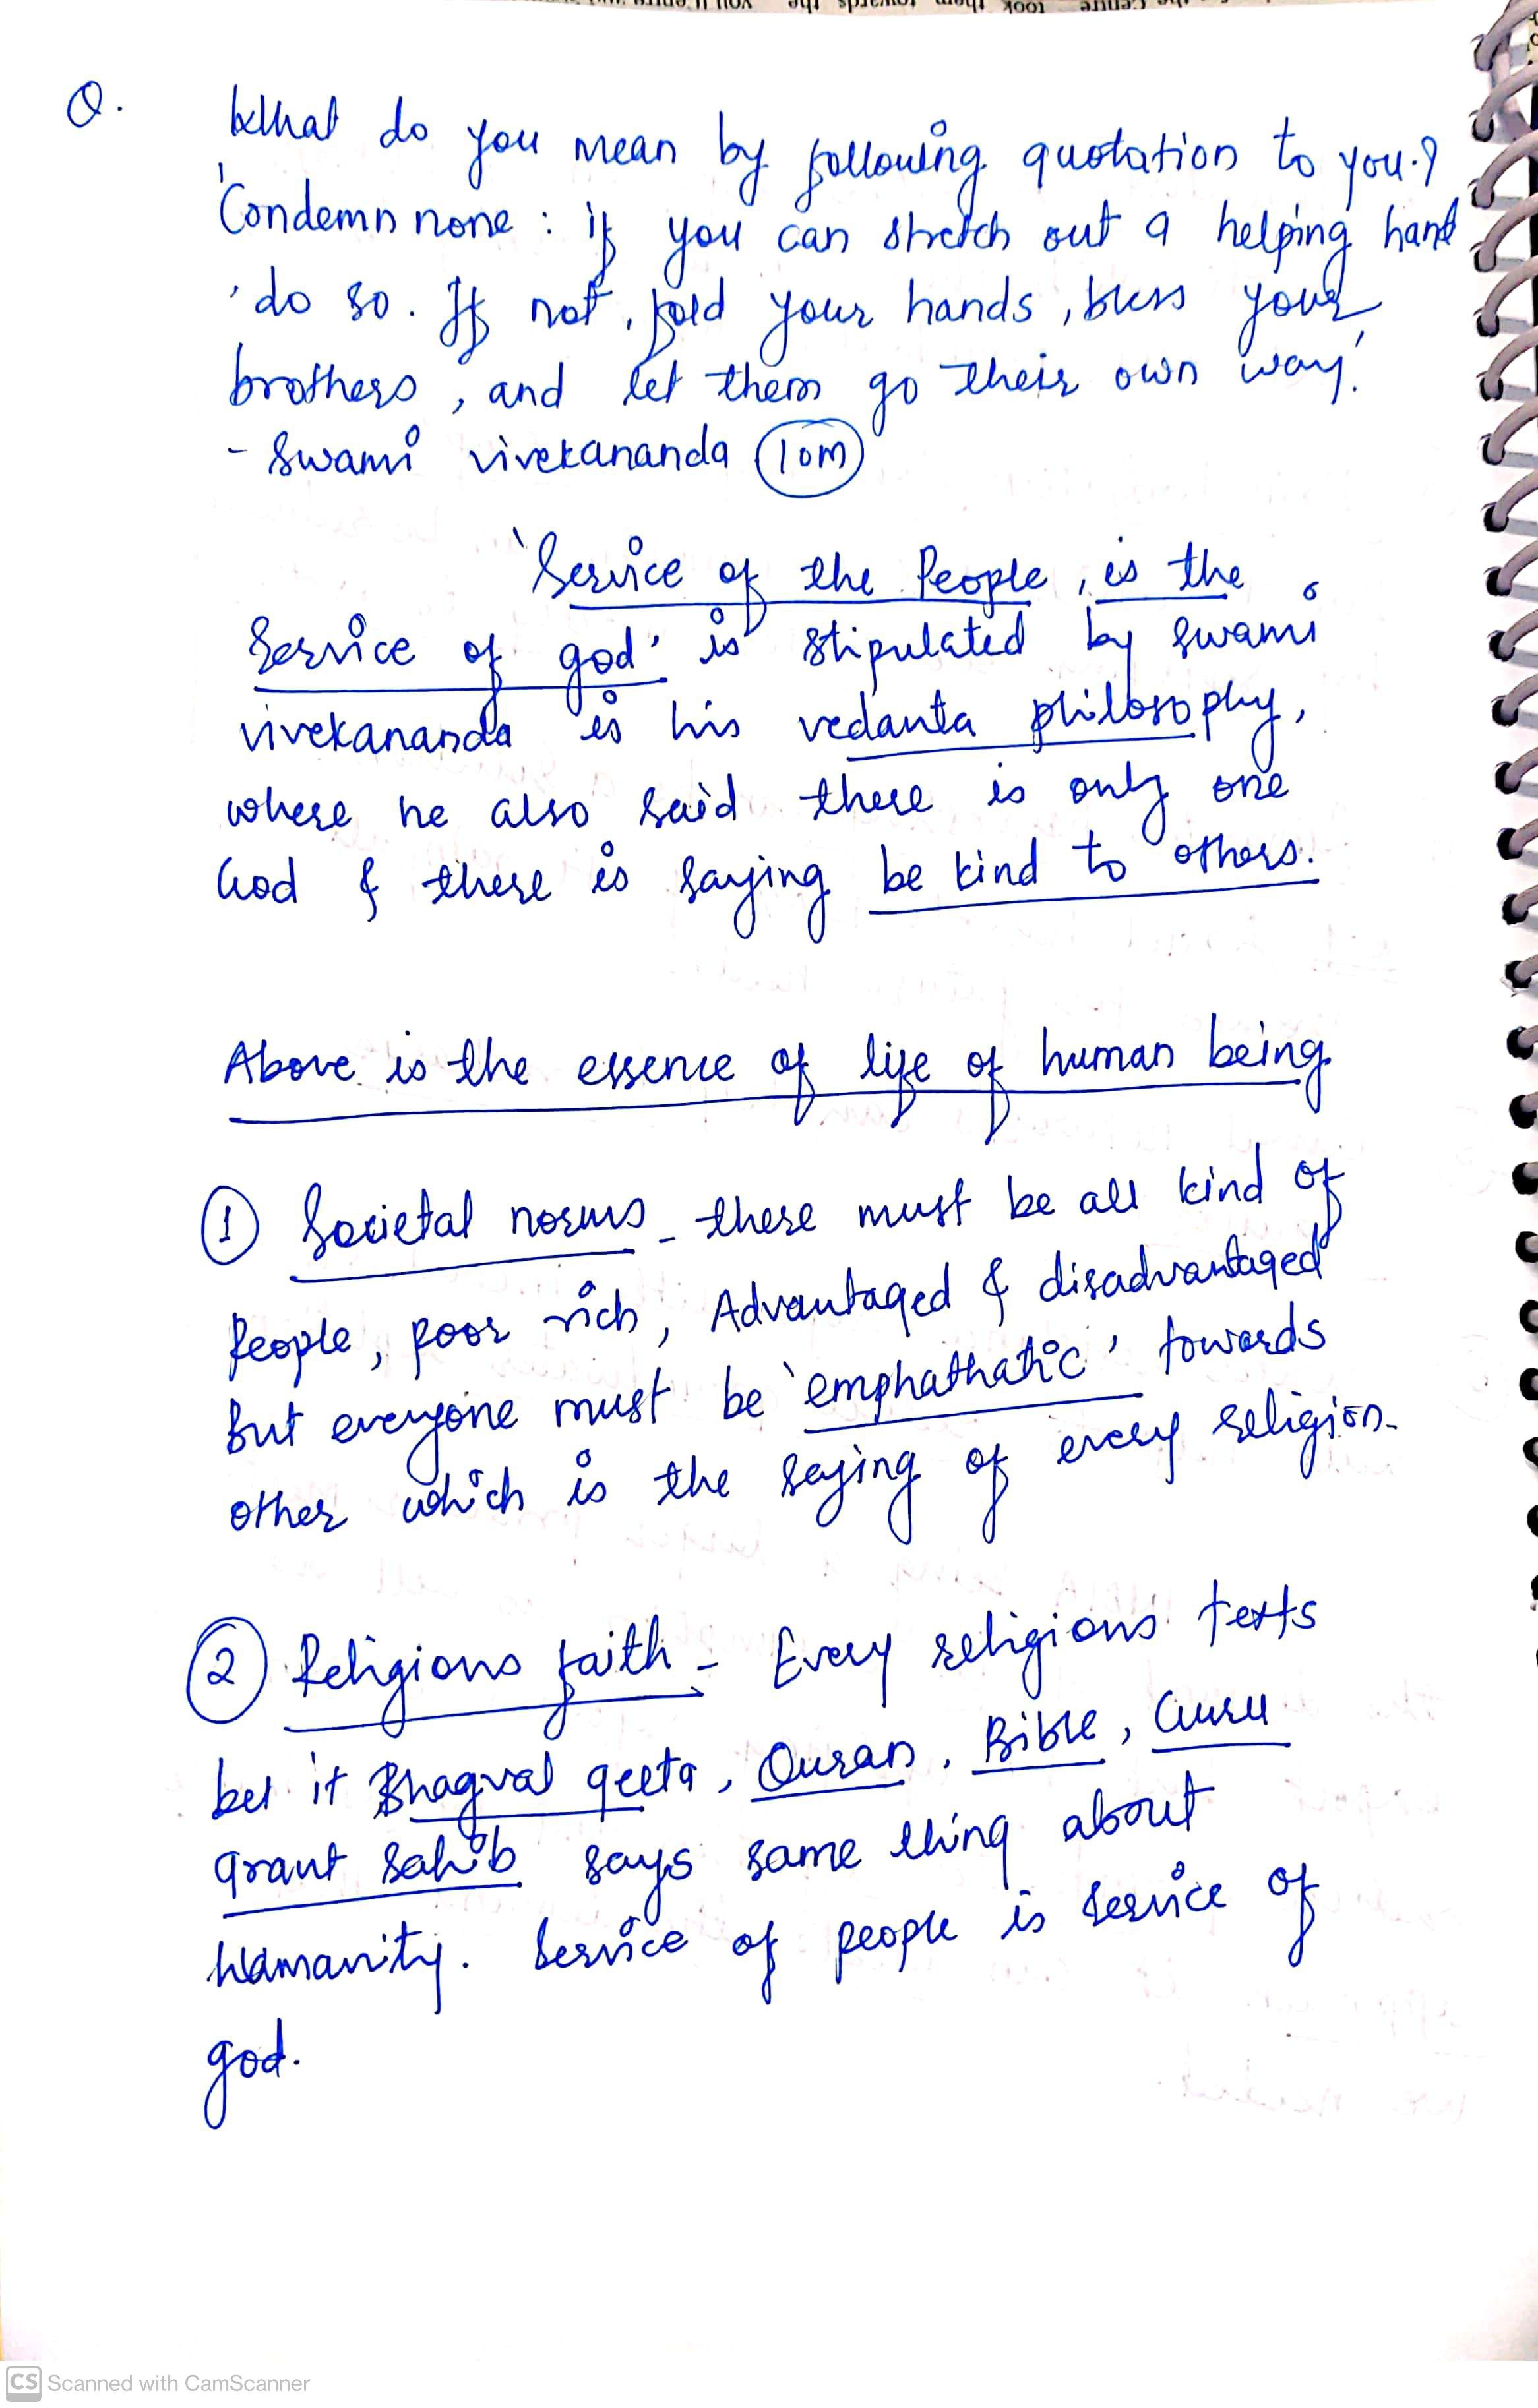 Q. What do you mean by following quotation to you.?
'Condemn none : if you can stretch out a helping hand
'do so. If not, fold your hands, bless your
brothers, and let them go their own way!
- Swami vivekananda (10m)
'Service of the People, is the
Service of god' is stipulated by swami
vivekananda is his vedanta philosophy,
where he also said there is only one
God & there is saying be kind to others.
Above is the essence of life of human being
① Societal norms - there must be all kind of
People, poor rich, Advantaged & disadvantaged
But everyone must be 'emphathatic' towards
other which is the saying of every religion.
② Religious faith - Every religious texts
bet it Bhagval geeta, Quran, Bible, Guru
grant sahib says same thing about
humanity. Service of people is service of
god.
CS Scanned with CamScanner